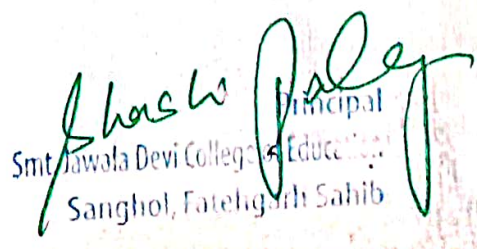 Shashi
Principal
Smt. Jawala Devi College of Education
Sanghol, Fatehgarh Sahib